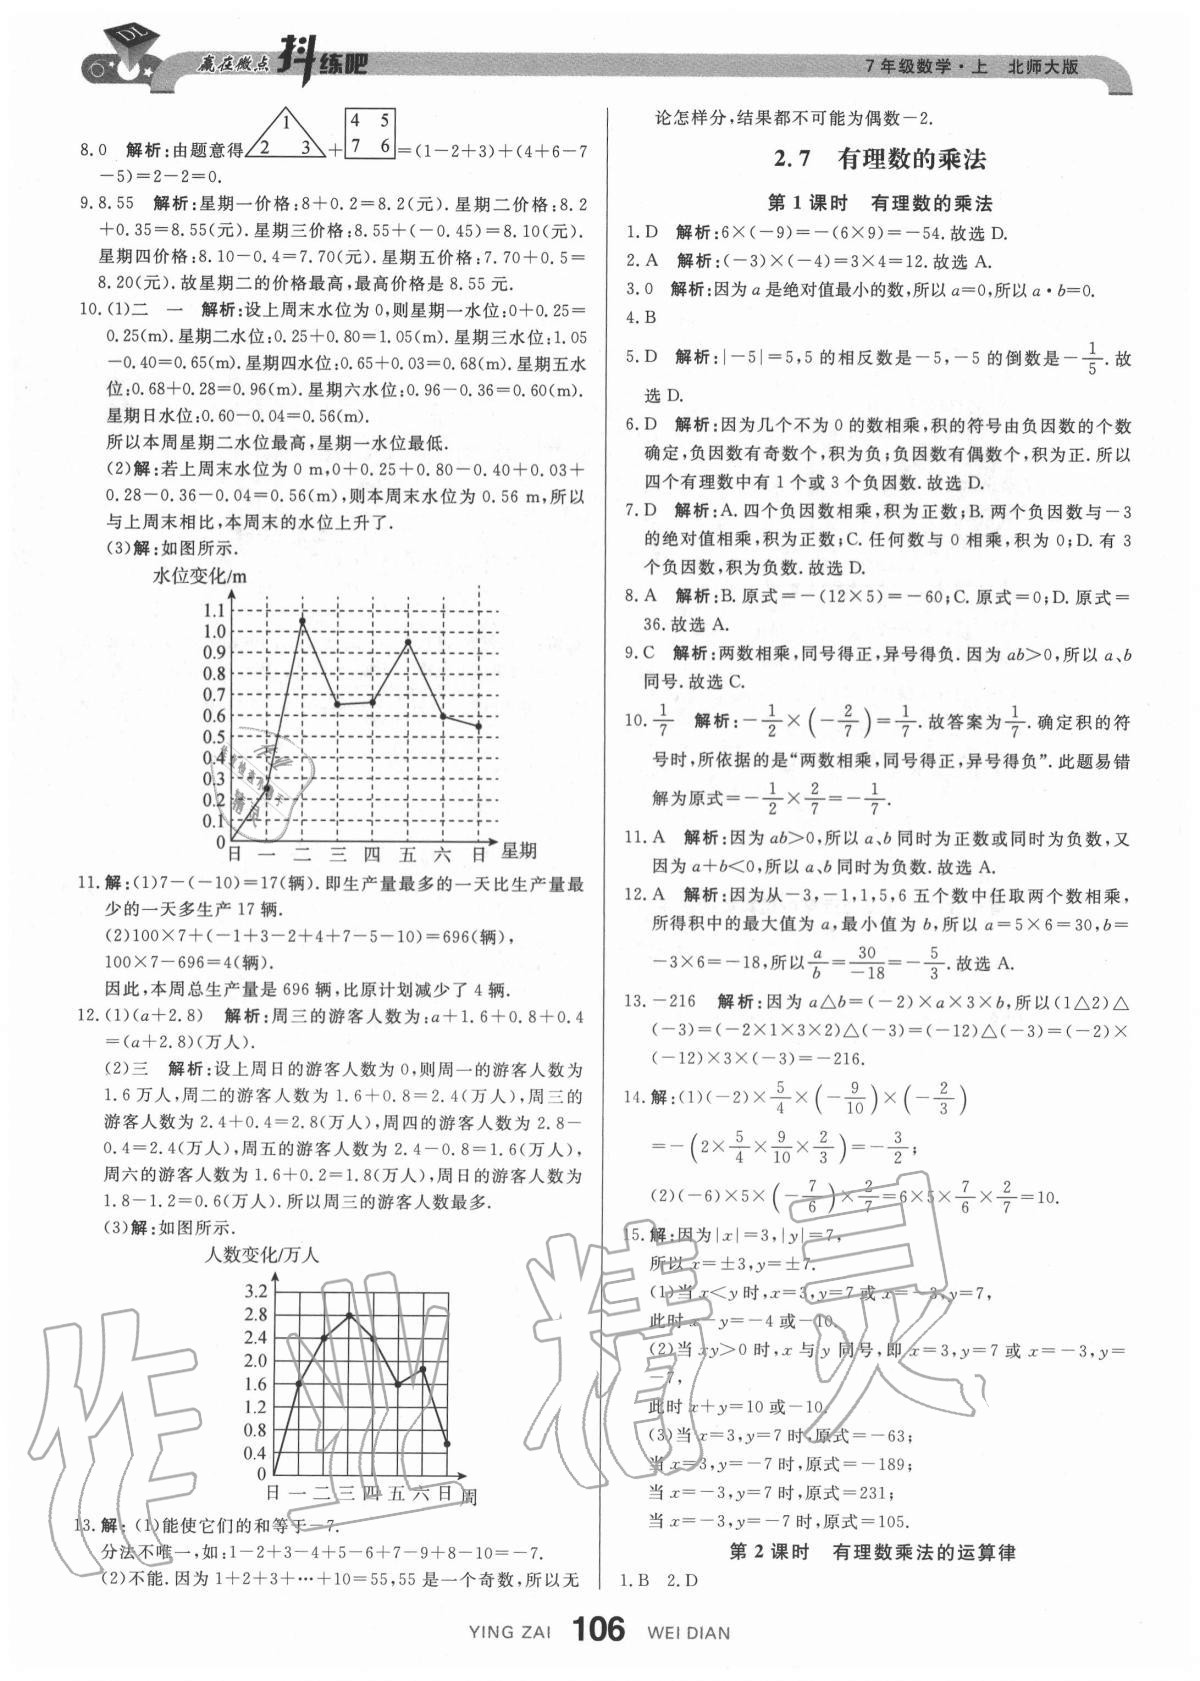 DL
赢在微点 抖练吧
7年级数学·上 北师大版
8.0 解析:由题意得 1 2 3 + 4 5 7 6 =(1-2+3)+(4+6-7
-5)=2-2=0.
9.8.55 解析:星期一价格:8+0.2=8.2(元).星期二价格:8.2
+0.35=8.55(元).星期三价格:8.55+(-0.45)=8.10(元).
星期四价格:8.10-0.4=7.70(元).星期五价格:7.70+0.5=
8.20(元).故星期二的价格最高,最高价格是8.55元.
10.(1)二 一 解析:设上周末水位为0,则星期一水位:0+0.25=
0.25(m).星期二水位:0.25+0.80=1.05(m).星期三水位:1.05
-0.40=0.65(m).星期四水位:0.65+0.03=0.68(m).星期五水
位:0.68+0.28=0.96(m).星期六水位:0.96-0.36=0.60(m).
星期日水位:0.60-0.04=0.56(m).
所以本周星期二水位最高,星期一水位最低.
(2)解:若上周末水位为0 m,0+0.25+0.80-0.40+0.03+
0.28-0.36-0.04=0.56(m),则本周末水位为0.56 m,所以
与上周末相比,本周末的水位上升了.
(3)解:如图所示.
水位变化/m
1.1
1.0
0.9
0.8
0.7
0.6
0.5
0.4
0.3
0.2
0.1
0
日 一 二 三 四 五 六 日 星期
11.解:(1)7-(-10)=17(辆).即生产量最多的一天比生产量最
少的一天多生产17辆.
(2)100×7+(-1+3-2+4+7-5-10)=696(辆),
100×7-696=4(辆).
因此,本周总生产量是696辆,比原计划减少了4辆.
12.(1)(a+2.8) 解析:周三的游客人数为:a+1.6+0.8+0.4
=(a+2.8)(万人).
(2)三 解析:设上周日的游客人数为0,则周一的游客人数为
1.6万人,周二的游客人数为1.6+0.8=2.4(万人),周三的
游客人数为2.4+0.4=2.8(万人),周四的游客人数为2.8-
0.4=2.4(万人),周五的游客人数为2.4-0.8=1.6(万人),
周六的游客人数为1.6+0.2=1.8(万人),周日的游客人数为
1.8-1.2=0.6(万人).所以周三的游客人数最多.
(3)解:如图所示.
人数变化/万人
3.2
2.8
2.4
2.0
1.6
1.2
0.8
0.4
0
日 一 二 三 四 五 六 日 周
13.解:(1)能使它们的和等于-7.
分法不唯一,如:1-2+3-4+5-6+7-9+8-10=-7.
(2)不能.因为1+2+3+…+10=55,55是一个奇数,所以无
论怎样分,结果都不可能为偶数-2.
2.7 有理数的乘法
第1课时 有理数的乘法
1.D 解析:6×(-9)=-(6×9)=-54.故选D.
2.A 解析:(-3)×(-4)=3×4=12.故选A.
3.0 解析:因为a是绝对值最小的数,所以a=0,所以a·b=0.
4.B
5.D 解析:|-5|=5,5的相反数是-5,-5的倒数是-1/5.故
选D.
6.D 解析:因为几个不为0的数相乘,积的符号由负因数的个数
确定,负因数有奇数个,积为负;负因数有偶数个,积为正.所以
四个有理数中有1个或3个负因数.故选D.
7.D 解析:A.四个负因数相乘,积为正数;B.两个负因数与-3
的绝对值相乘,积为正数;C.任何数与0相乘,积为0;D.有3
个负因数,积为负数.故选D.
8.A 解析:B.原式=-(12×5)=-60;C.原式=0;D.原式=
36.故选A.
9.C 解析:两数相乘,同号得正,异号得负.因为ab>0,所以a、b
同号.故选C.
10.1/7 解析:-1/2×(-2/7)=1/7.故答案为1/7.确定积的符
号时,所依据的是“两数相乘,同号得正,异号得负”.此题易错
解为原式=-1/2×2/7=-1/7.
11.A 解析:因为ab>0,所以a、b同时为正数或同时为负数,又
因为a+b<0,所以a、b同时为负数.故选A.
12.A 解析:因为从-3,-1,1,5,6五个数中任取两个数相乘,
所得积中的最大值为a,最小值为b,所以a=5×6=30,b=
-3×6=-18,所以a/b=30/-18=-5/3.故选A.
13.-216 解析:因为a△b=(-2)×a×3×b,所以(1△2)△
(-3)=(-2×1×3×2)△(-3)=(-12)△(-3)=(-2)×
(-12)×3×(-3)=-216.
14.解:(1)(-2)×5/4×(-9/10)×(-2/3)
=-(2×5/4×9/10×2/3)=-3/2;
(2)(-6)×5×(-7/6)×2/7=6×5×7/6×2/7=10.
15.解:因为|x|=3,|y|=7,
所以x=±3,y=±7.
(1)当x<y时,x=3,y=7或x=-3,y=7,
此时x-y=-4或-10.
(2)当xy>0时,x与y同号,即x=3,y=7或x=-3,y=
-7,
此时x+y=10或-10.
(3)当x=3,y=7时,原式=-63;
当x=3,y=-7时,原式=-189;
当x=-3,y=7时,原式=231;
当x=-3,y=-7时,原式=105.
第2课时 有理数乘法的运算律
1.B 2.D
作业精灵
YING ZAI 106 WEI DIAN